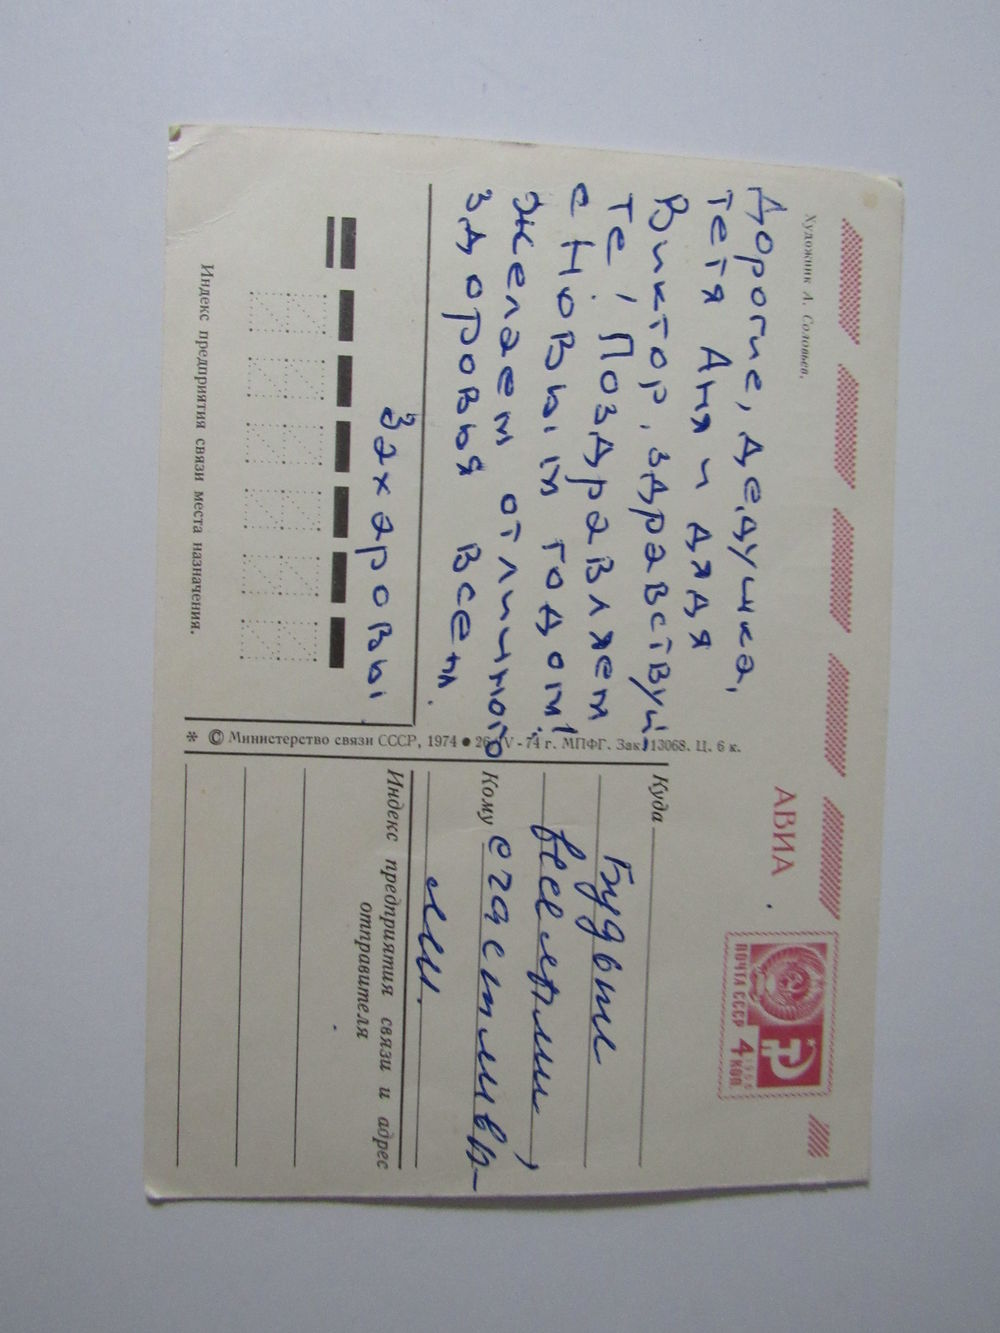 Художник А. Соловьев.
Дорогие, дедушка,
тетя Аня и дядя
Виктор, здравствуй,
те! Поздравляем
с Новым годом!
Желаем отличного
здоровья всем.
Захаровы.
Индекс предприятия связи места назначения.
* © Министерство связи СССР, 1974 ● 26/IV-74 г. МПФГ. Зак. 13068. Ц. 6 к.
АВИА
ПОЧТА СССР 4 КОП.
1966
Куда
Будьте
веселыми,
Кому счастливы-
ми.
Индекс предприятия связи и адрес
отправителя